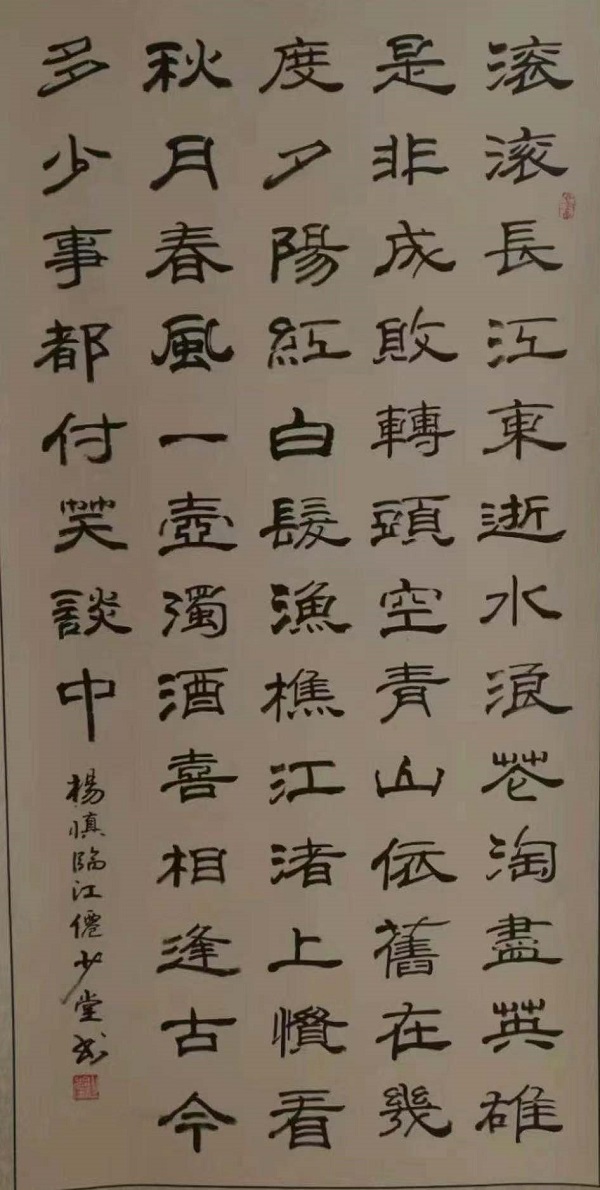 滚滚長江東逝水浪花淘盡英雄
是非成敗轉頭空青山依舊在幾
度夕陽紅白髮漁樵江渚上慣看
秋月春風一壺濁酒喜相逢古今
多少事都付笑談中
楊慎臨江僊少堂书